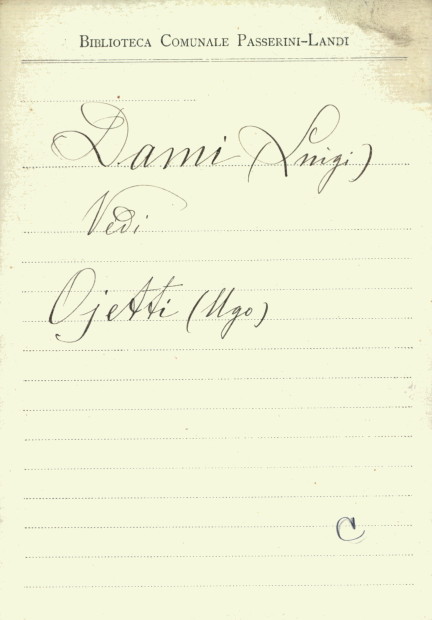 Biblioteca Comunale Passerini-Landi
Dami (Luigi)
Vedi
Ojetti (Ugo)
C